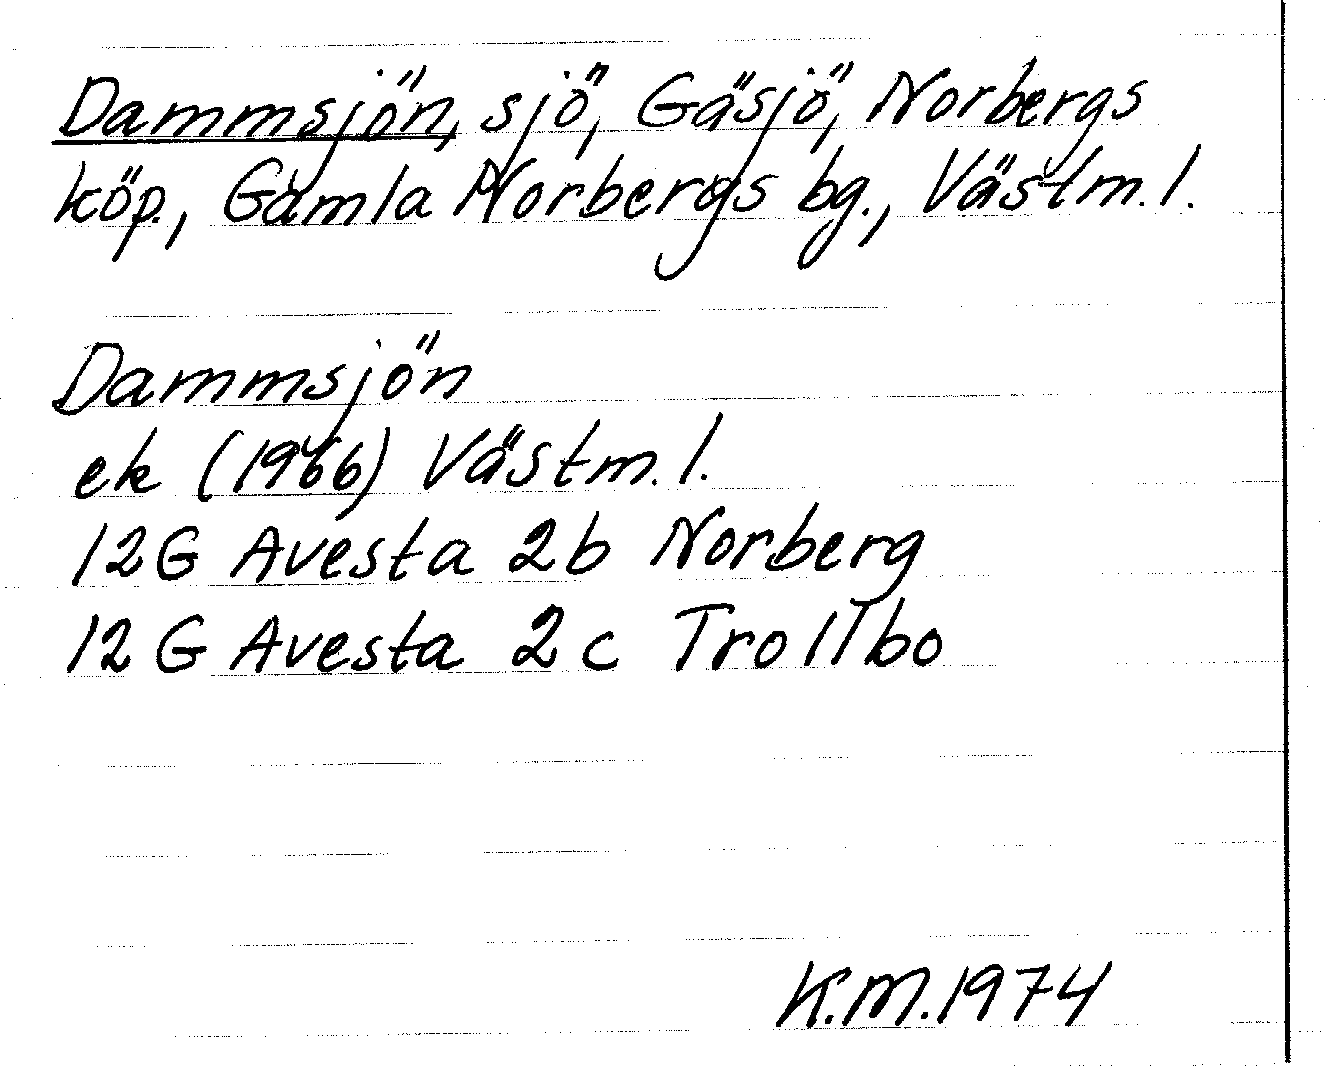 Dammsjön, sjö, Gäsjö, Norbergs
köp., Gamla Norbergs bg., Västm. l.
Dammsjön
ek (1966) Västm. l.
12G Avesta 2b Norberg
12G Avesta 2c Trollbo
K.M. 1974